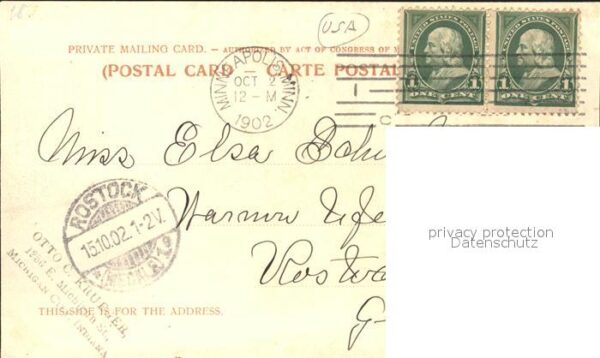 USA
PRIVATE MAILING CARD. — AUTHORIZED BY ACT OF CONGRESS OF M
(POSTAL CARD — CARTE POSTAL
MINNEAPOLIS, MINN.
OCT 2
12-M
1902
UNITED STATES POSTAGE
1 1
ONE CENT
UNITED STATES POSTAGE
1 1
ONE CENT
Miss Elsa
ROSTOCK
15.10.02. 1-2V.
Rostoc
G
privacy protection
Datenschutz
OTTO C. KRUEGER,
MICHIGAN CITY, INDIANA
THIS SIDE IS FOR THE ADDRESS.